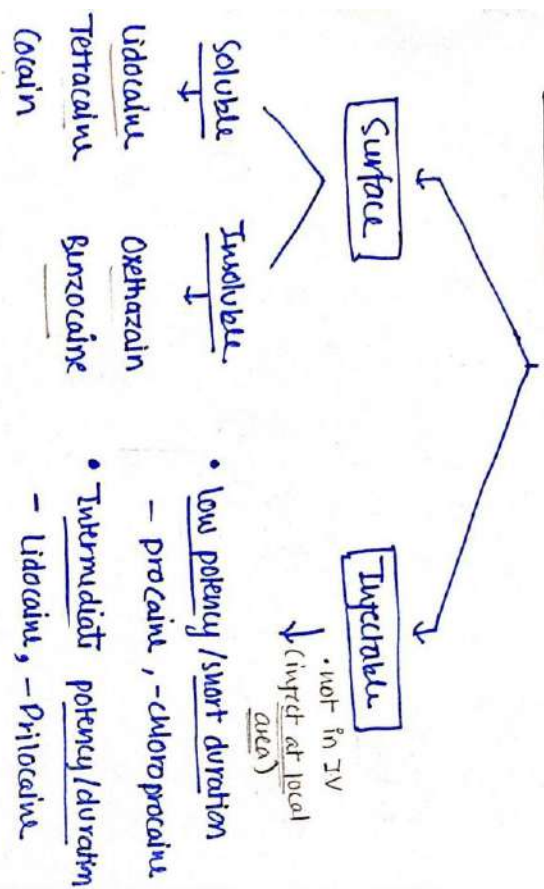 Surface
Soluble
Lidocaine
Tetracaine
Cocain
Insoluble
Oxethazain
Benzocaine
Injectable
• not in IV
(inject at local
area)
• low potency/short duration
- procaine, - chloroprocaine
• Intermediate potency/duration
- Lidocaine, - Prilocaine